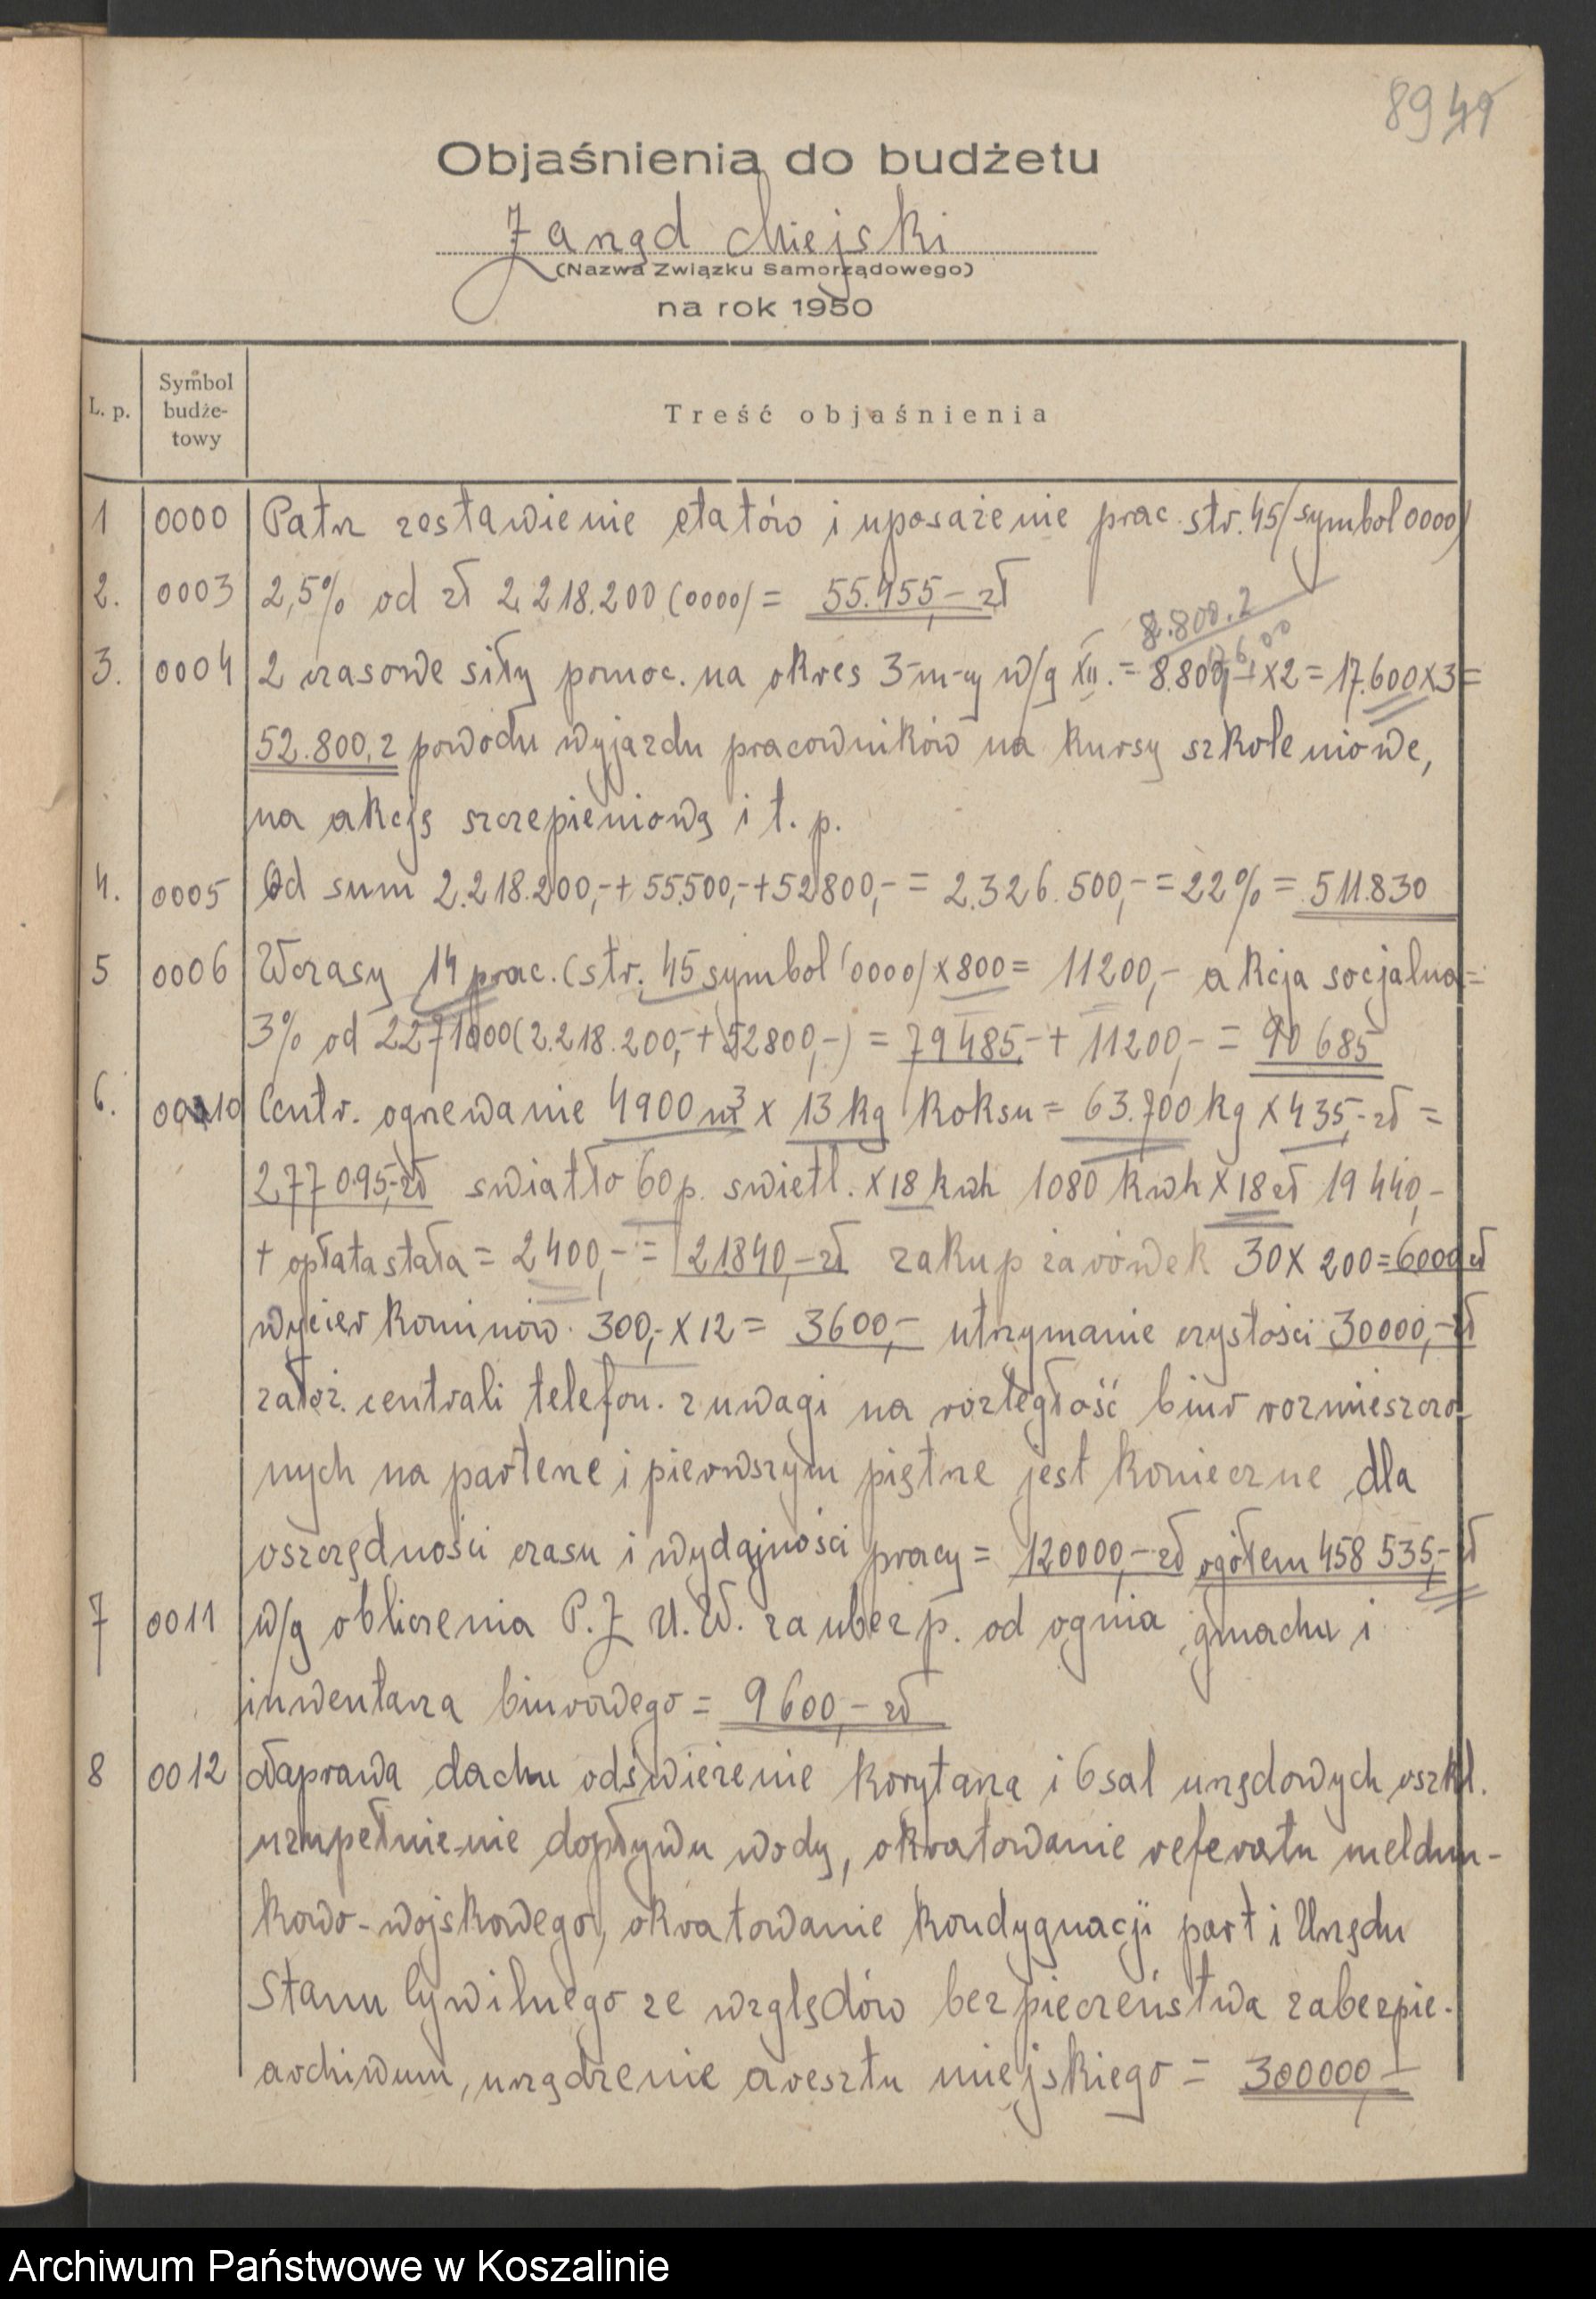 89 49
Objaśnienia do budżetu
Zarząd Miejski
(Nazwa Związku Samorządowego)
na rok 1950
L. p.
Symbol
budże-
towy
Treść objaśnienia
1 0000 Patrz zestawienie etatów i uposażenie prac. str. 45 (symbol 0000)
2. 0003 2,5% od zł 2.218.200 (0000) = 55.455,- zł
8.800.2
3. 0004 2 czasowe siły pomoc. na okres 3-m-cy w/g XII. = 8.800,- x 2 = 17.600 x 3 =
52.800, z powodu wyjazdu pracowników na kursy szkoleniowe,
na akcję szczepieniową i t. p.
4. 0005 Od sum 2.218.200,- + 55.500,- + 52800,- = 2.326.500,- = 22% = 511.830
5 0006 Wczasy 14 prac. (str. 45 symbol (0000) x 800 = 11200,- akcja socjalna =
3% od 2271000 (2.218.200,- + 52800,-) = 79485,- + 11200,- = 90685
6. 0010 Centr. ogrzewanie 4900 m3 x 13 kg koksu = 63.700 kg x 435,- zł =
277095,- zł swiatło 60 p. swietl. x 18 kwh 1080 kwh x 18 zł 19440,-
+ opłata stała = 2400,- = 21840,- zł zakup żarówek 30 x 200 = 6000 zł
wycier kominów 300,- x 12 = 3600,- utrzymanie czystości 30000,- zł
załoz. centrali telefon. z uwagi na rozległość biur rozmieszczo-
nych na parterze i pierwszym piętrze jest konieczne dla
oszczędności czasu i wydajności pracy = 120000,- zł ogółem 458535,- zł
7 0011 w/g obliczenia P.Z.U.W. za ubezp. od ognia gmachu i
inwentarza biurowego = 9600,- zł
8 0012 Naprawa dachu odświeżenie korytarza i 6 sal urzędowych oszkl.
uzupełnienie dopływu wody, okratowanie referatu meldun-
kowo-wojskowego, okratowanie kondygnacji part i Urzędu
Stanu Cywilnego ze względów bezpieczeństwa zabezpie.
archiwum, urządzenie aresztu miejskiego = 300000,-
Archiwum Państwowe w Koszalinie